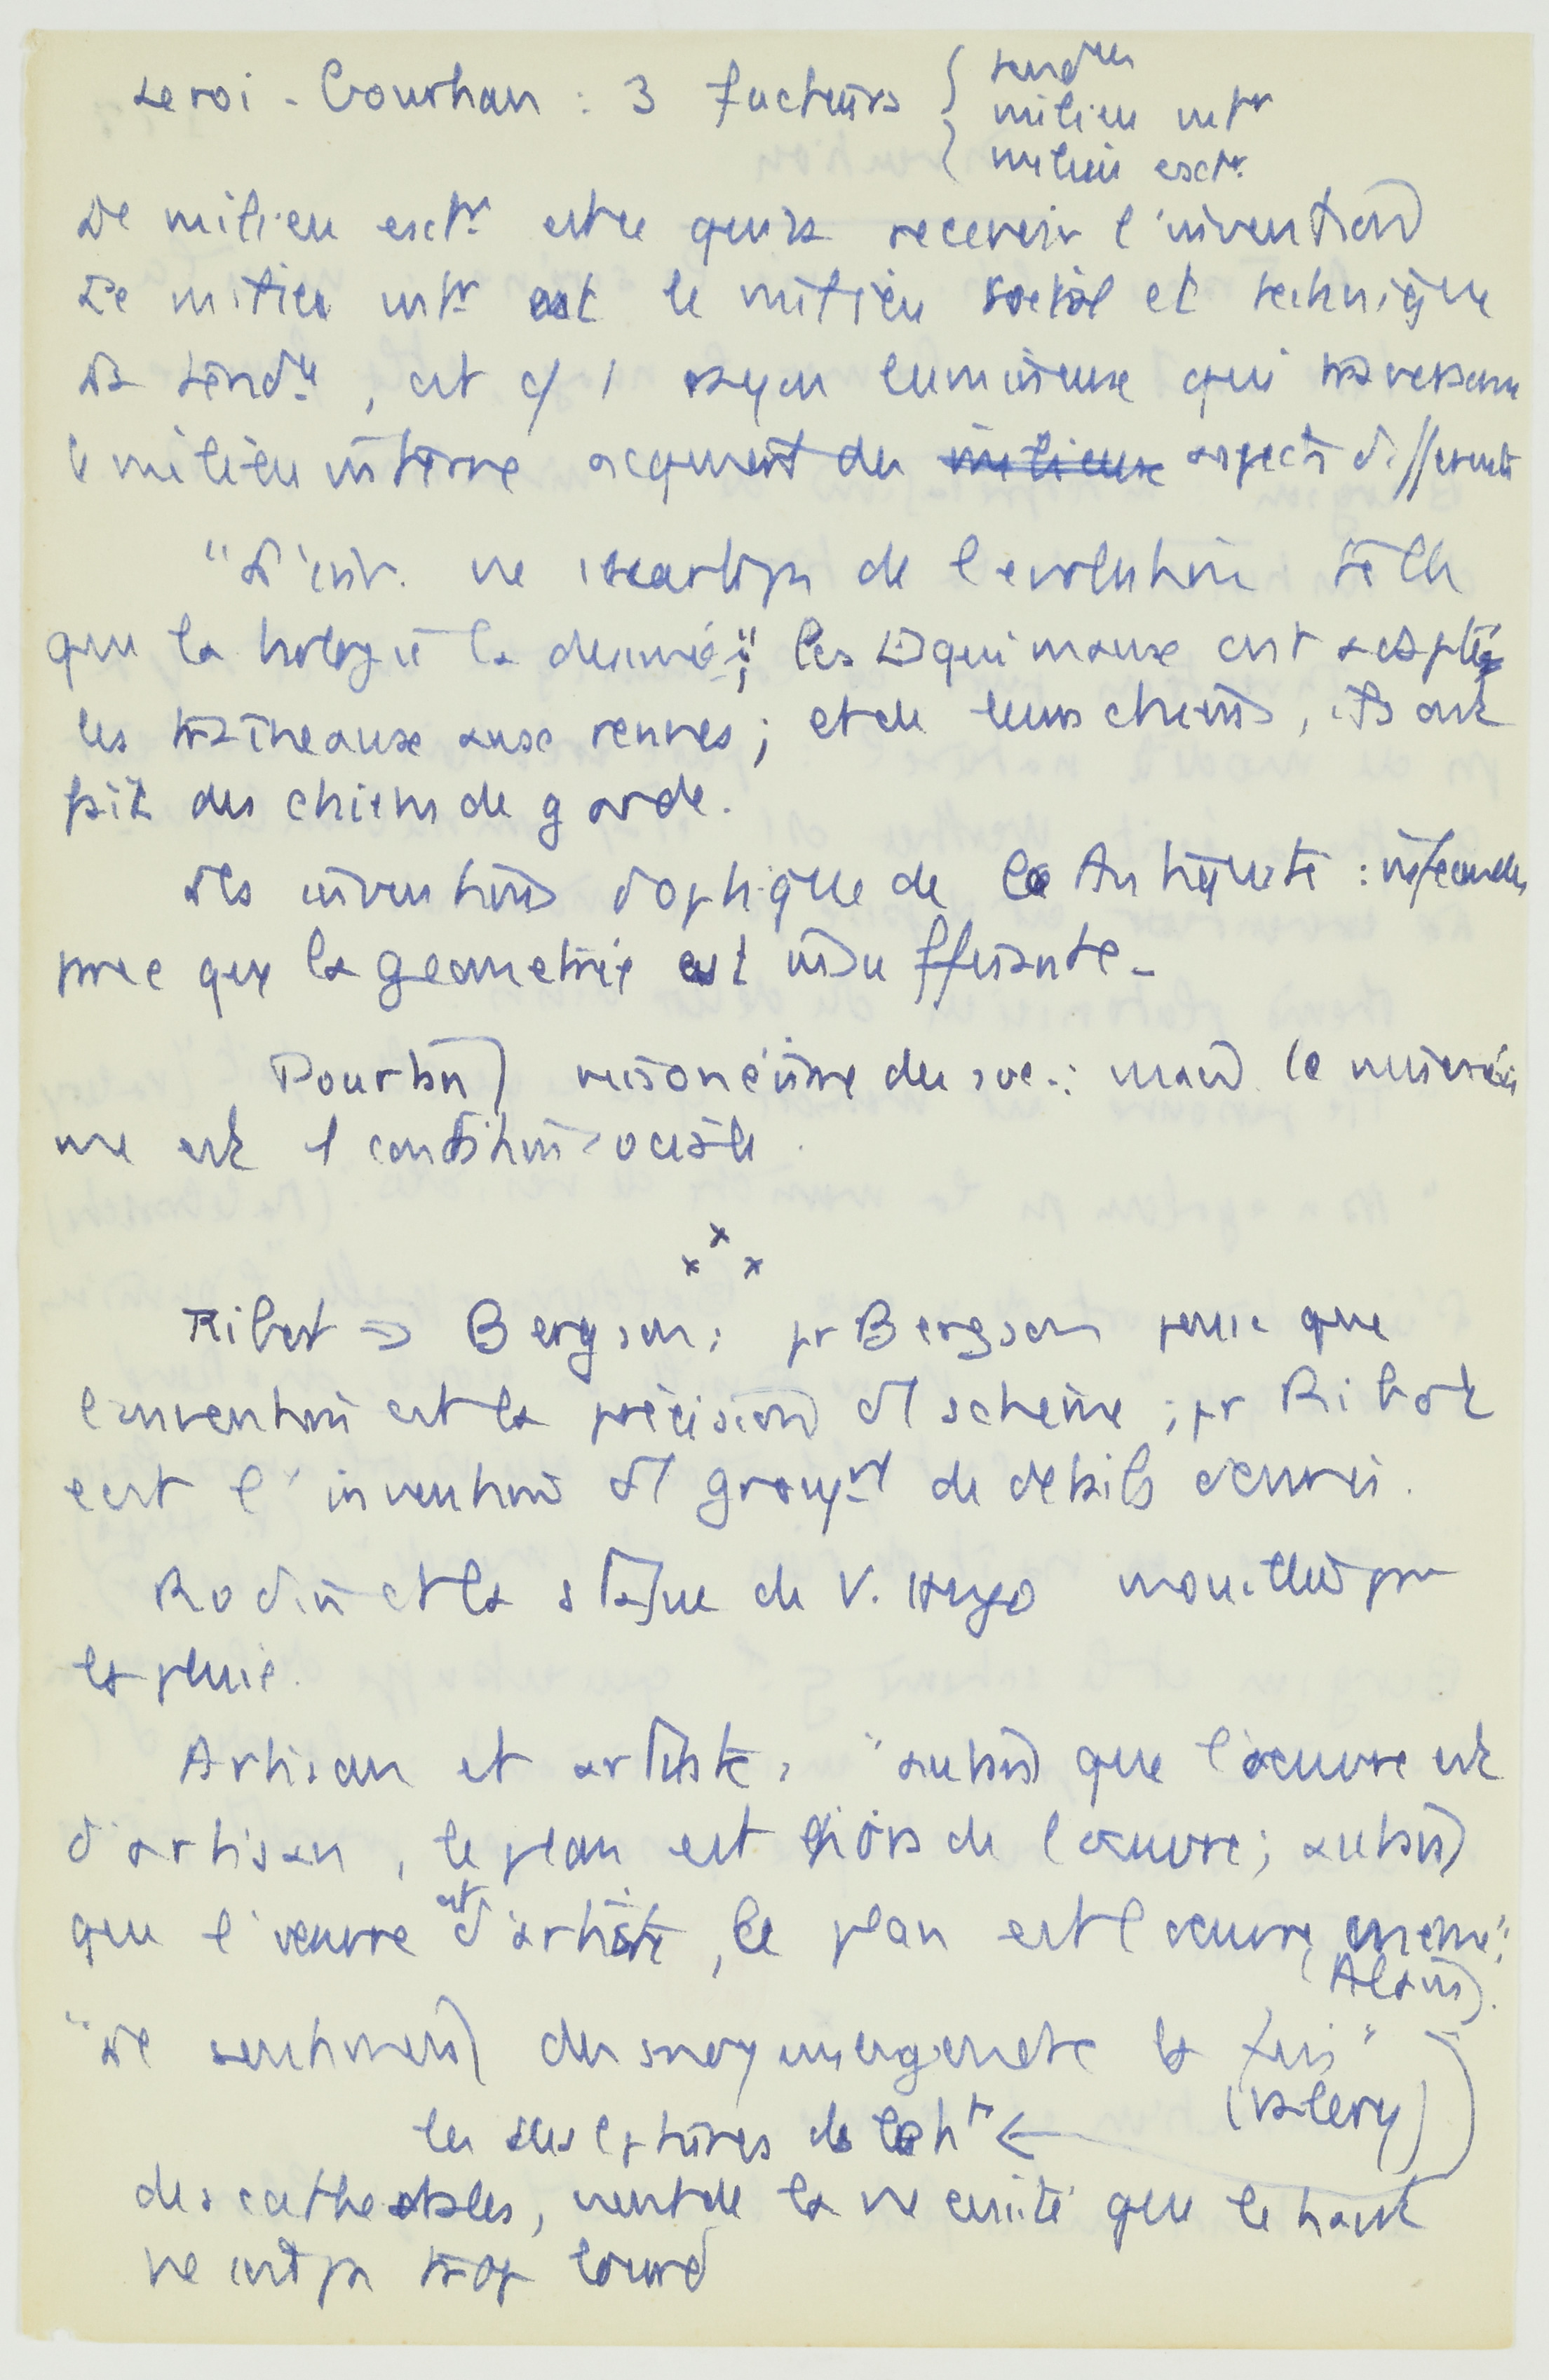 Leroi-Gourhan : 3 facteurs { tendces
milieu intr
milieu extr.
Le milieu extr. est ce qui va recevoir l'invention
Le milieu intr est le milieu social et technique
La tendce, est c/ 1 rayon lumineux qui traversant
le milieu interne acquiert des milieux aspects différents
"L'inv. ne s'écarte pas de l'evolution telle
que la biologie la decrirait"; les Esquimaux ont adapté
les traîneaux aux rennes ; et de leurs chiens, ils ont
fait des chiens de garde.
Les inventions d'optique de l'Antiquité : infécondes
parce que la géométrie est insuffisante.
Pourtant misonéisme des soc. : mais le misonéis
me est 1 condition sociale.
x x x
Ribot => Bergson ; pr Bergson pense que
l'invention est la précision d'1 schème ; pr Ribot
c'est l'invention d'1 groupt de détails
Rodin et la statue de V. Hugo mouillée par
la pluie.
Artisan et artiste, "autant que l'oeuvre est
d'artisan, le plan est hors de l'oeuvre ; autant
que l'oeuvre est d'artiste, le plan est l'oeuvre même".
(Alain).
"Le sentiment des moyens engendre la fin"
(Valery)
les sculptures de la ht
des cathedrales, vient de la necessité que le haut
ne soit pas trop lourd